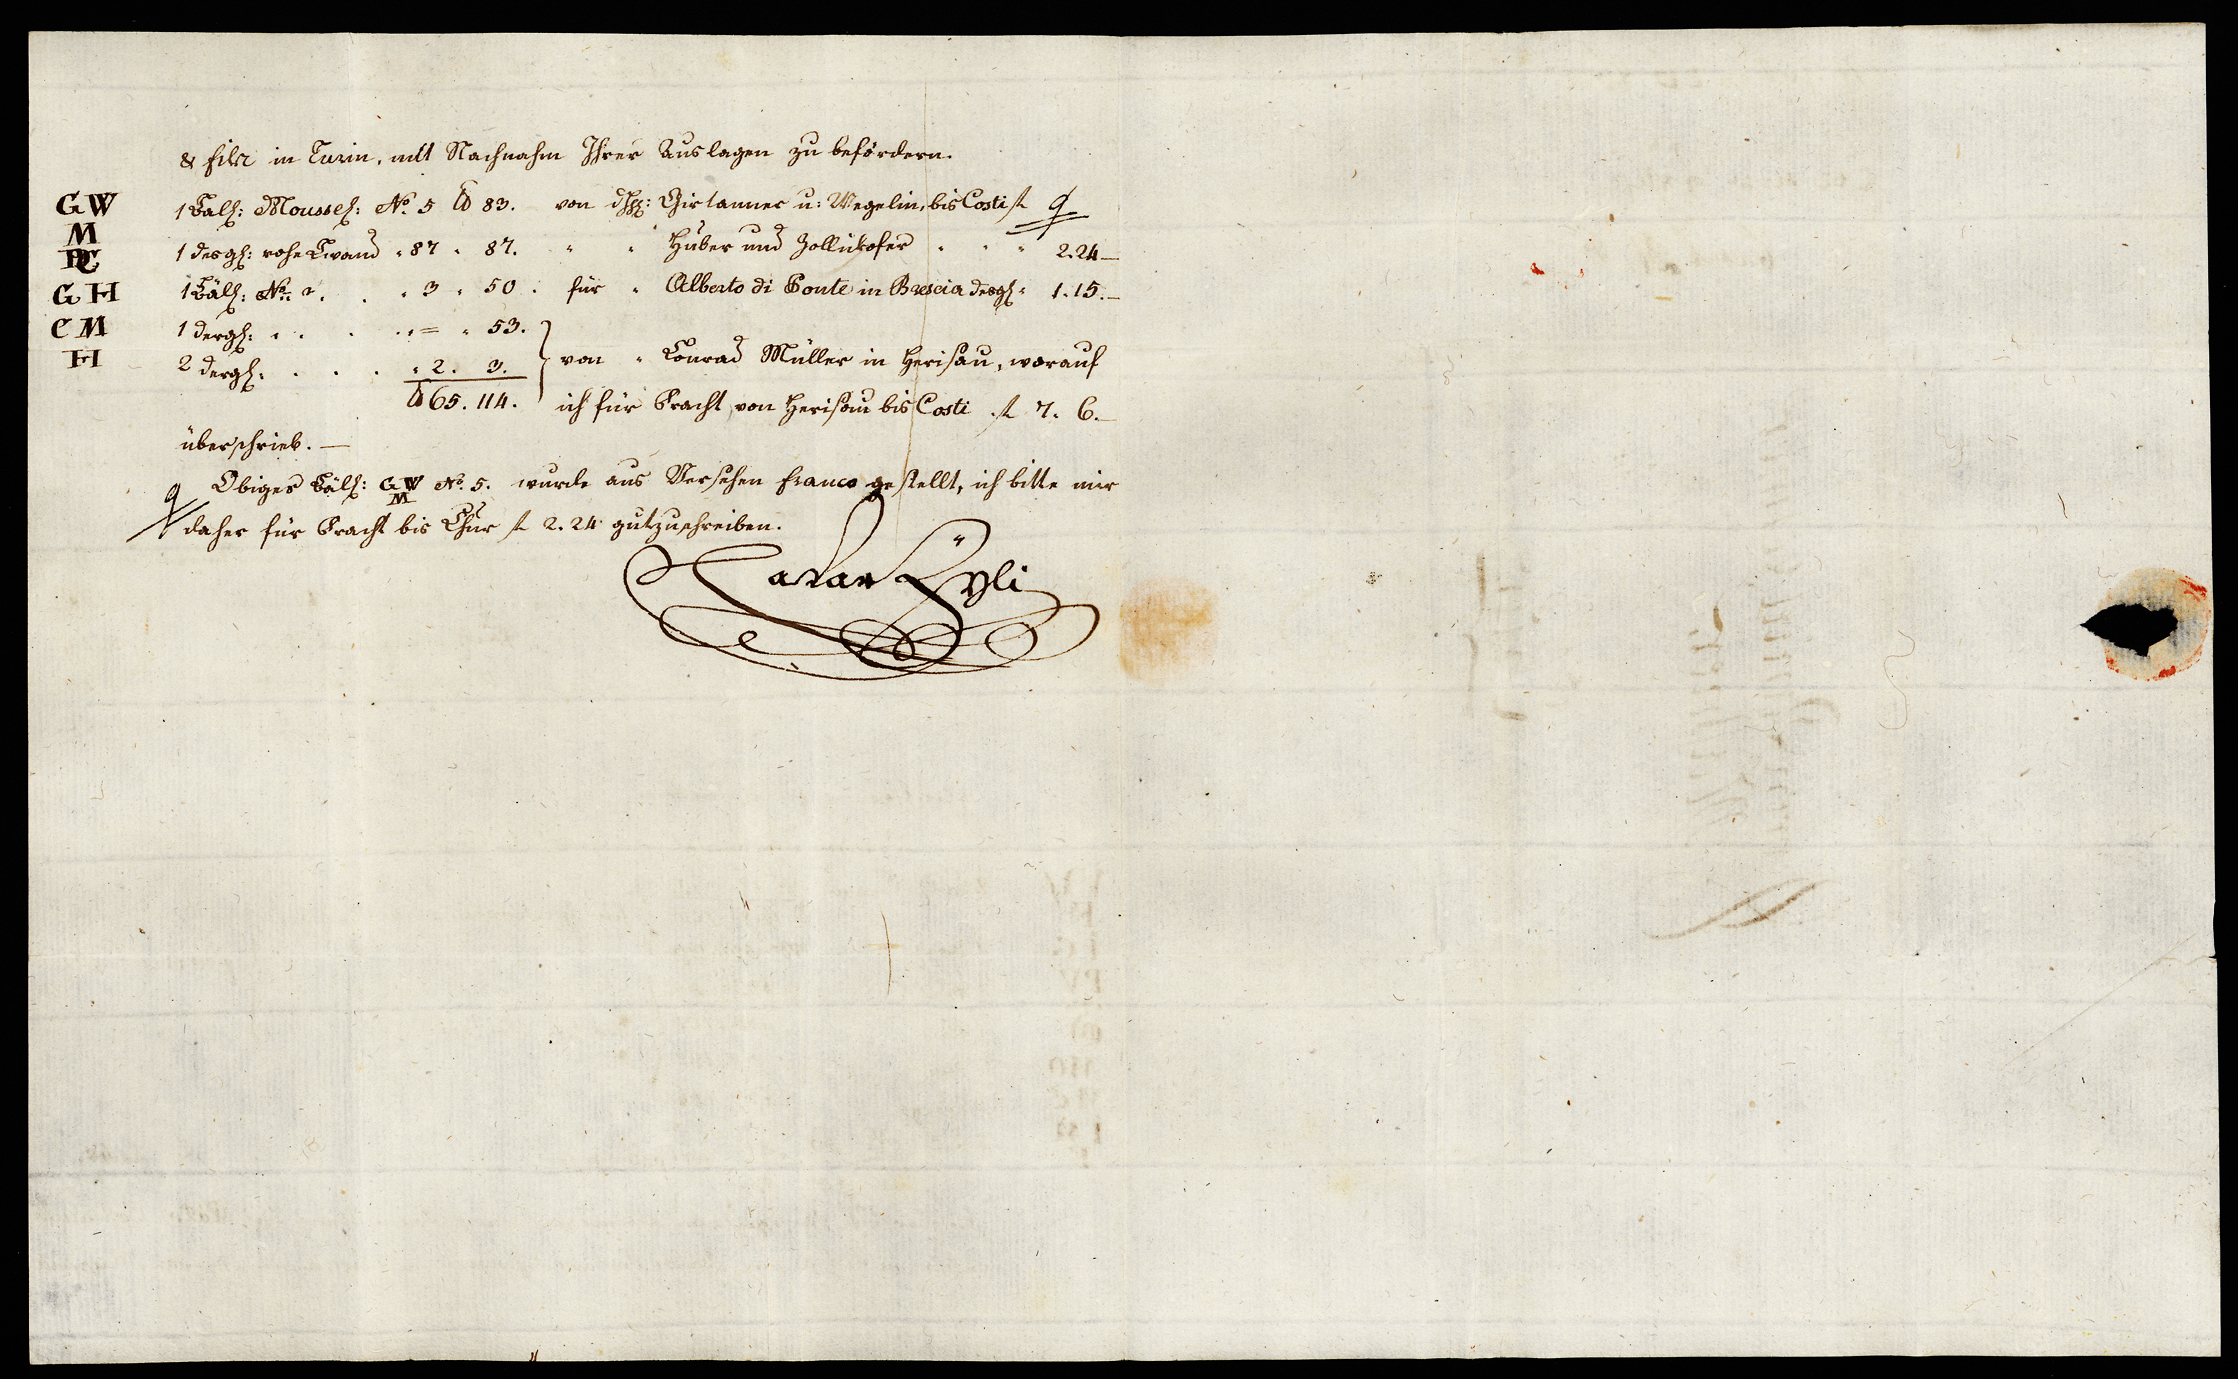 & fils in Turin, mit Nachnahm Ihrer Auslagen zu befördern.
GW 1 Ball: Moussel: No. 5 ℔ 83. von Girtanner u: Wegelin, bis Costi f
M
PC 1 desgl: rohe Lwand " 87 " 87. " " Huber und Zollikofer " " " 2.24—
GH 1 Bäll: No. . . " 3 " 50. für " Alberto di Ponte in Brescia desgl " 1.15.—
CM 1 dergl: . . . . " = " 53.
H 2 dergl: . . . . " 2. 3. von " Conrad Müller in Herisau, worauf
℔ 65. 114. ich für Fracht von Herisau bis Costi f 7. 6.—
überschrieb.—
Obiges Bäll: GW/M No. 5. wurde aus Versehen franco gestellt, ich bitte mir
daher für Fracht bis Chur f 2.24 gutzuschreiben.
Zyli